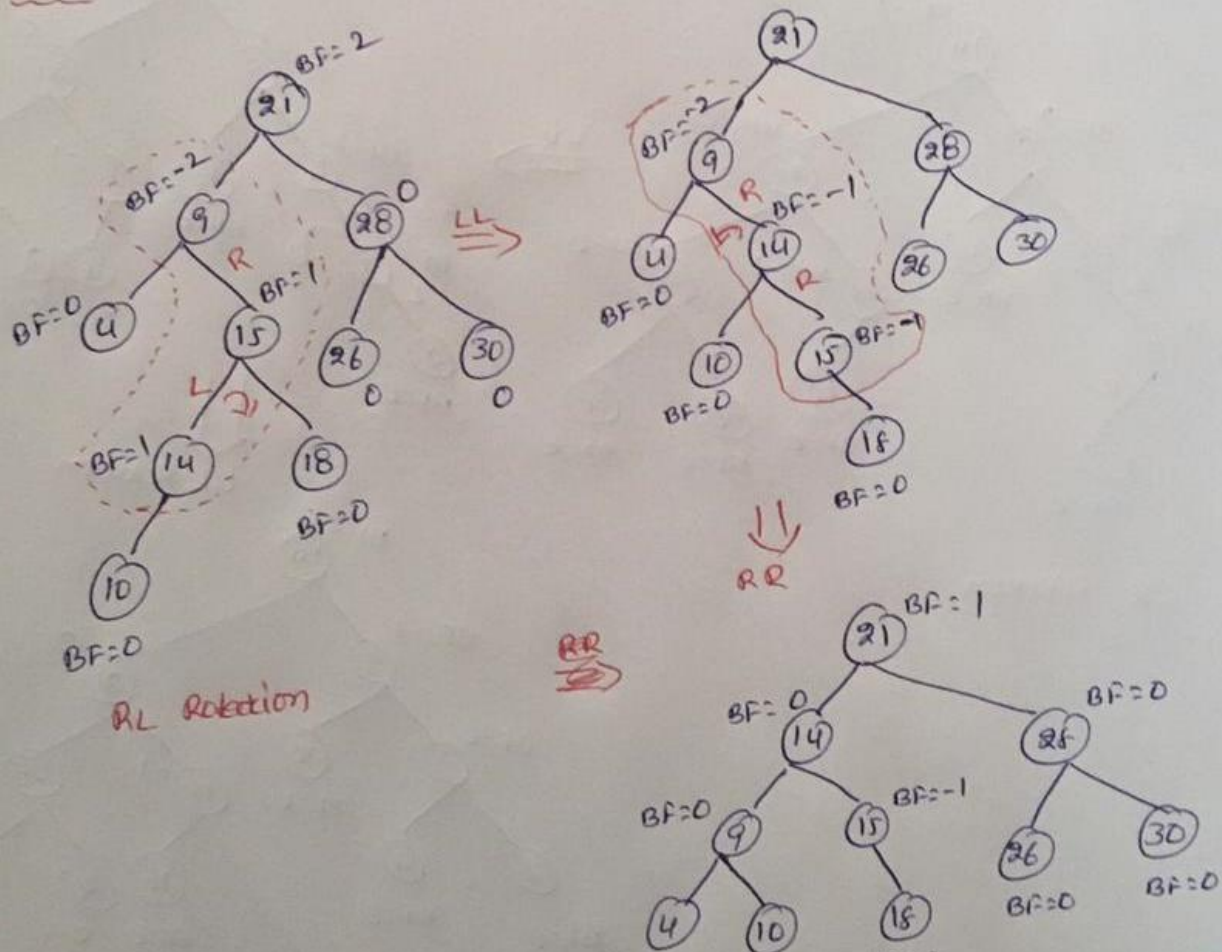 BF=2
21
BF=-2
9
28
0
R
BF=1
BF=0
4
15
26
0
30
0
L
BF=1
14
18
BF=0
10
BF=0
RL Rotation
LL
21
BF=-2
9
28
R
BF=-1
4
BF=0
14
26
30
R
10
BF=0
15
BF=-1
18
BF=0
RR
RR
21
BF=1
BF=0
14
BF=0
28
BF=0
9
15
BF=-1
26
BF=0
30
BF=0
4
10
18